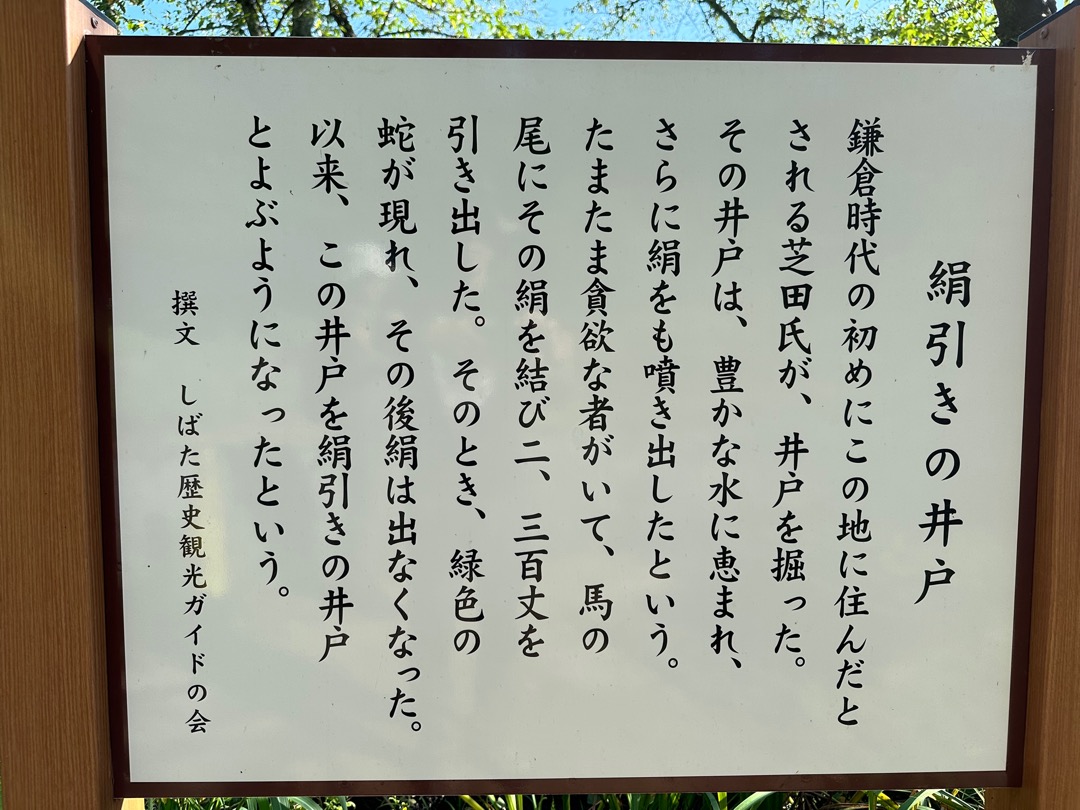 絹引きの井戸
鎌倉時代の初めにこの地に住んだと
される芝田氏が、井戸を掘った。
その井戸は、豊かな水に恵まれ、
さらに絹をも噴き出したという。
たまたま貪欲な者がいて、馬の
尾にその絹を結び二、三百丈を
引き出した。そのとき、緑色の
蛇が現れ、その後絹は出なくなった。
以来、この井戸を絹引きの井戸
とよぶようになったという。
撰文 しばた歴史観光ガイドの会